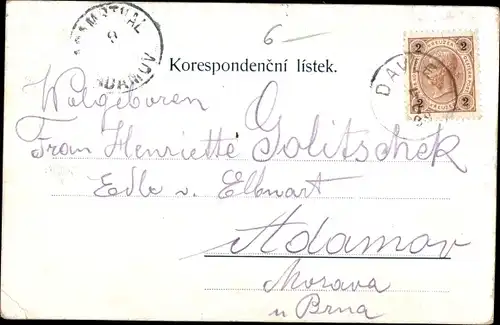 ADAMSTHAL
9
ADAMOV
6 —
Korespondenční lístek.
2 2
KREUZER
2 2
Wolgeboren
Frau Henriette Golitschek
Edle v. Elbwart
Adamov
Morava
u Brna